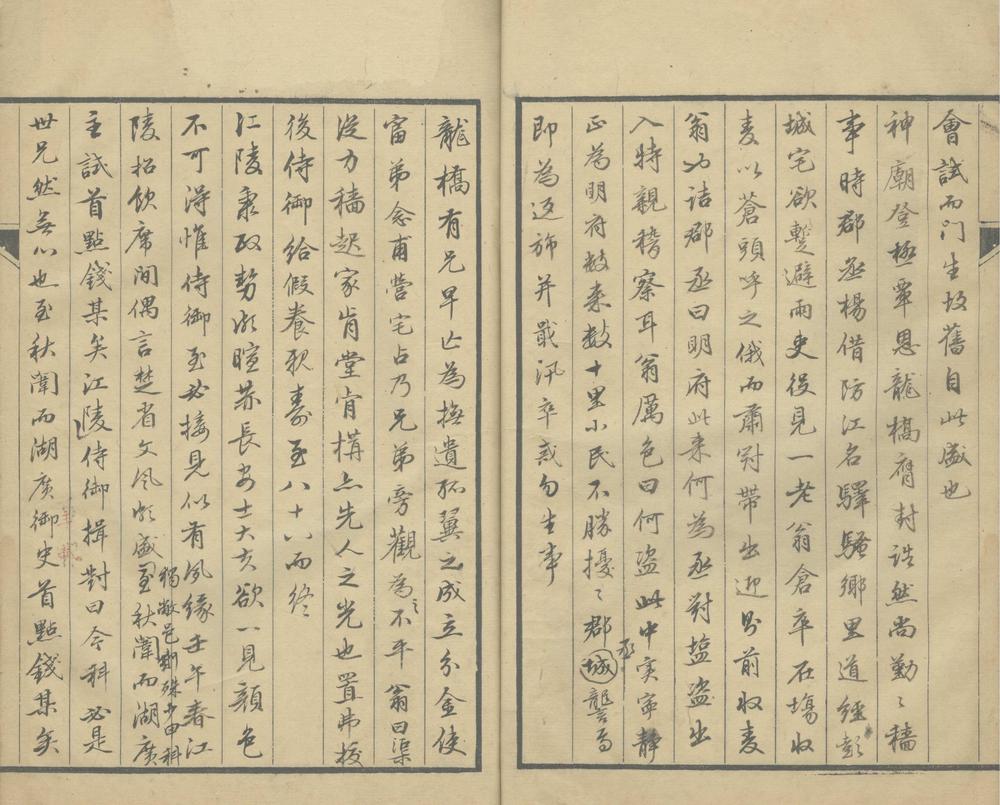 會試而門生故舊自此盛也
神廟登極覃恩龍橋膺封誥然尚勤〻穡
事時郡丞楊借防江名驛騷鄉里道經彭
城宅欲暫避雨史役見一老翁倉卒在塲收
麦以蒼頭呼之俄而肅冠帶出迎即前收麦
翁也詰郡丞曰明府此来何為丞對塩盜出
入特親稽察耳翁厲色曰何盜此中実寕静
正為明府故来数十里小民不勝擾〻郡城丞讋焉
即為返斾并戢汛卒戒勿生事
龍橋有兄早亡為撫遺孤翼之成立分金使
甯弟念甫營宅占乃兄弟旁觀為之不平翁曰渠
從力穡起家肯堂肯構亦先人之光也置弗較
後侍御給假養親壽至八十八而終
江陵秉政勢炎暄赫長安士大夫欲一見顏色
不可得惟侍御至必接見似有夙緣壬午春江
陵招飲席間偶言楚省文風頗盛獨敝邑殊少由科至秋闈而湖廣
主試首點錢某矣江陵侍御揖對曰今科必是
世兄然無心也至秋闈而湖廣御史首點錢某矣